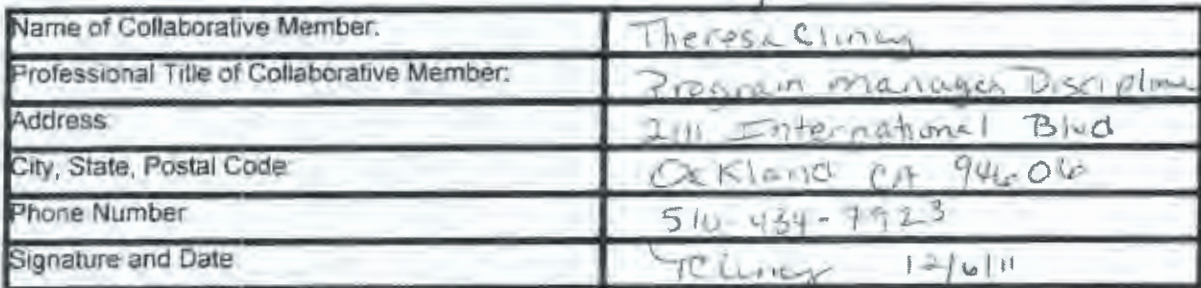 Name of Collaborative Member: Theresa Clincy
Professional Title of Collaborative Member: Program Manager Discipline
Address: 2111 International Blvd
City, State, Postal Code: Oakland CA 94606
Phone Number 510-434-7923
Signature and Date TClincy 12/6/11